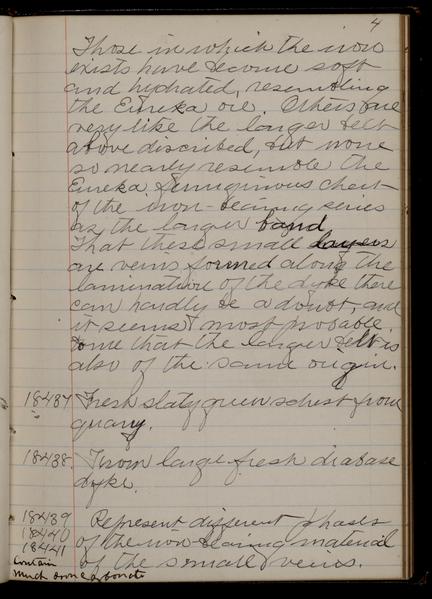 4
Those in which the iron
exists have become soft
and hydrated, resembling
the Eureka ore. Others are
very like the larger belt
above discribed, but none
so nearly resemble the
Eureka ferruginous chert
of the iron-bearing series
as the larger band
That these small layers
are veins formed along the
laminature of the dyke there
can hardly be a doubt, and
it seems most probable
to me that the larger belt is
also of the same origin.
18437 Fresh slaty green schist from
quarry.
18438. From large fresh diabase
dyke.
18439 Represent different phases
18440 of the iron-bearing material
18441 of the small veins.
Contain
much iron carbonate